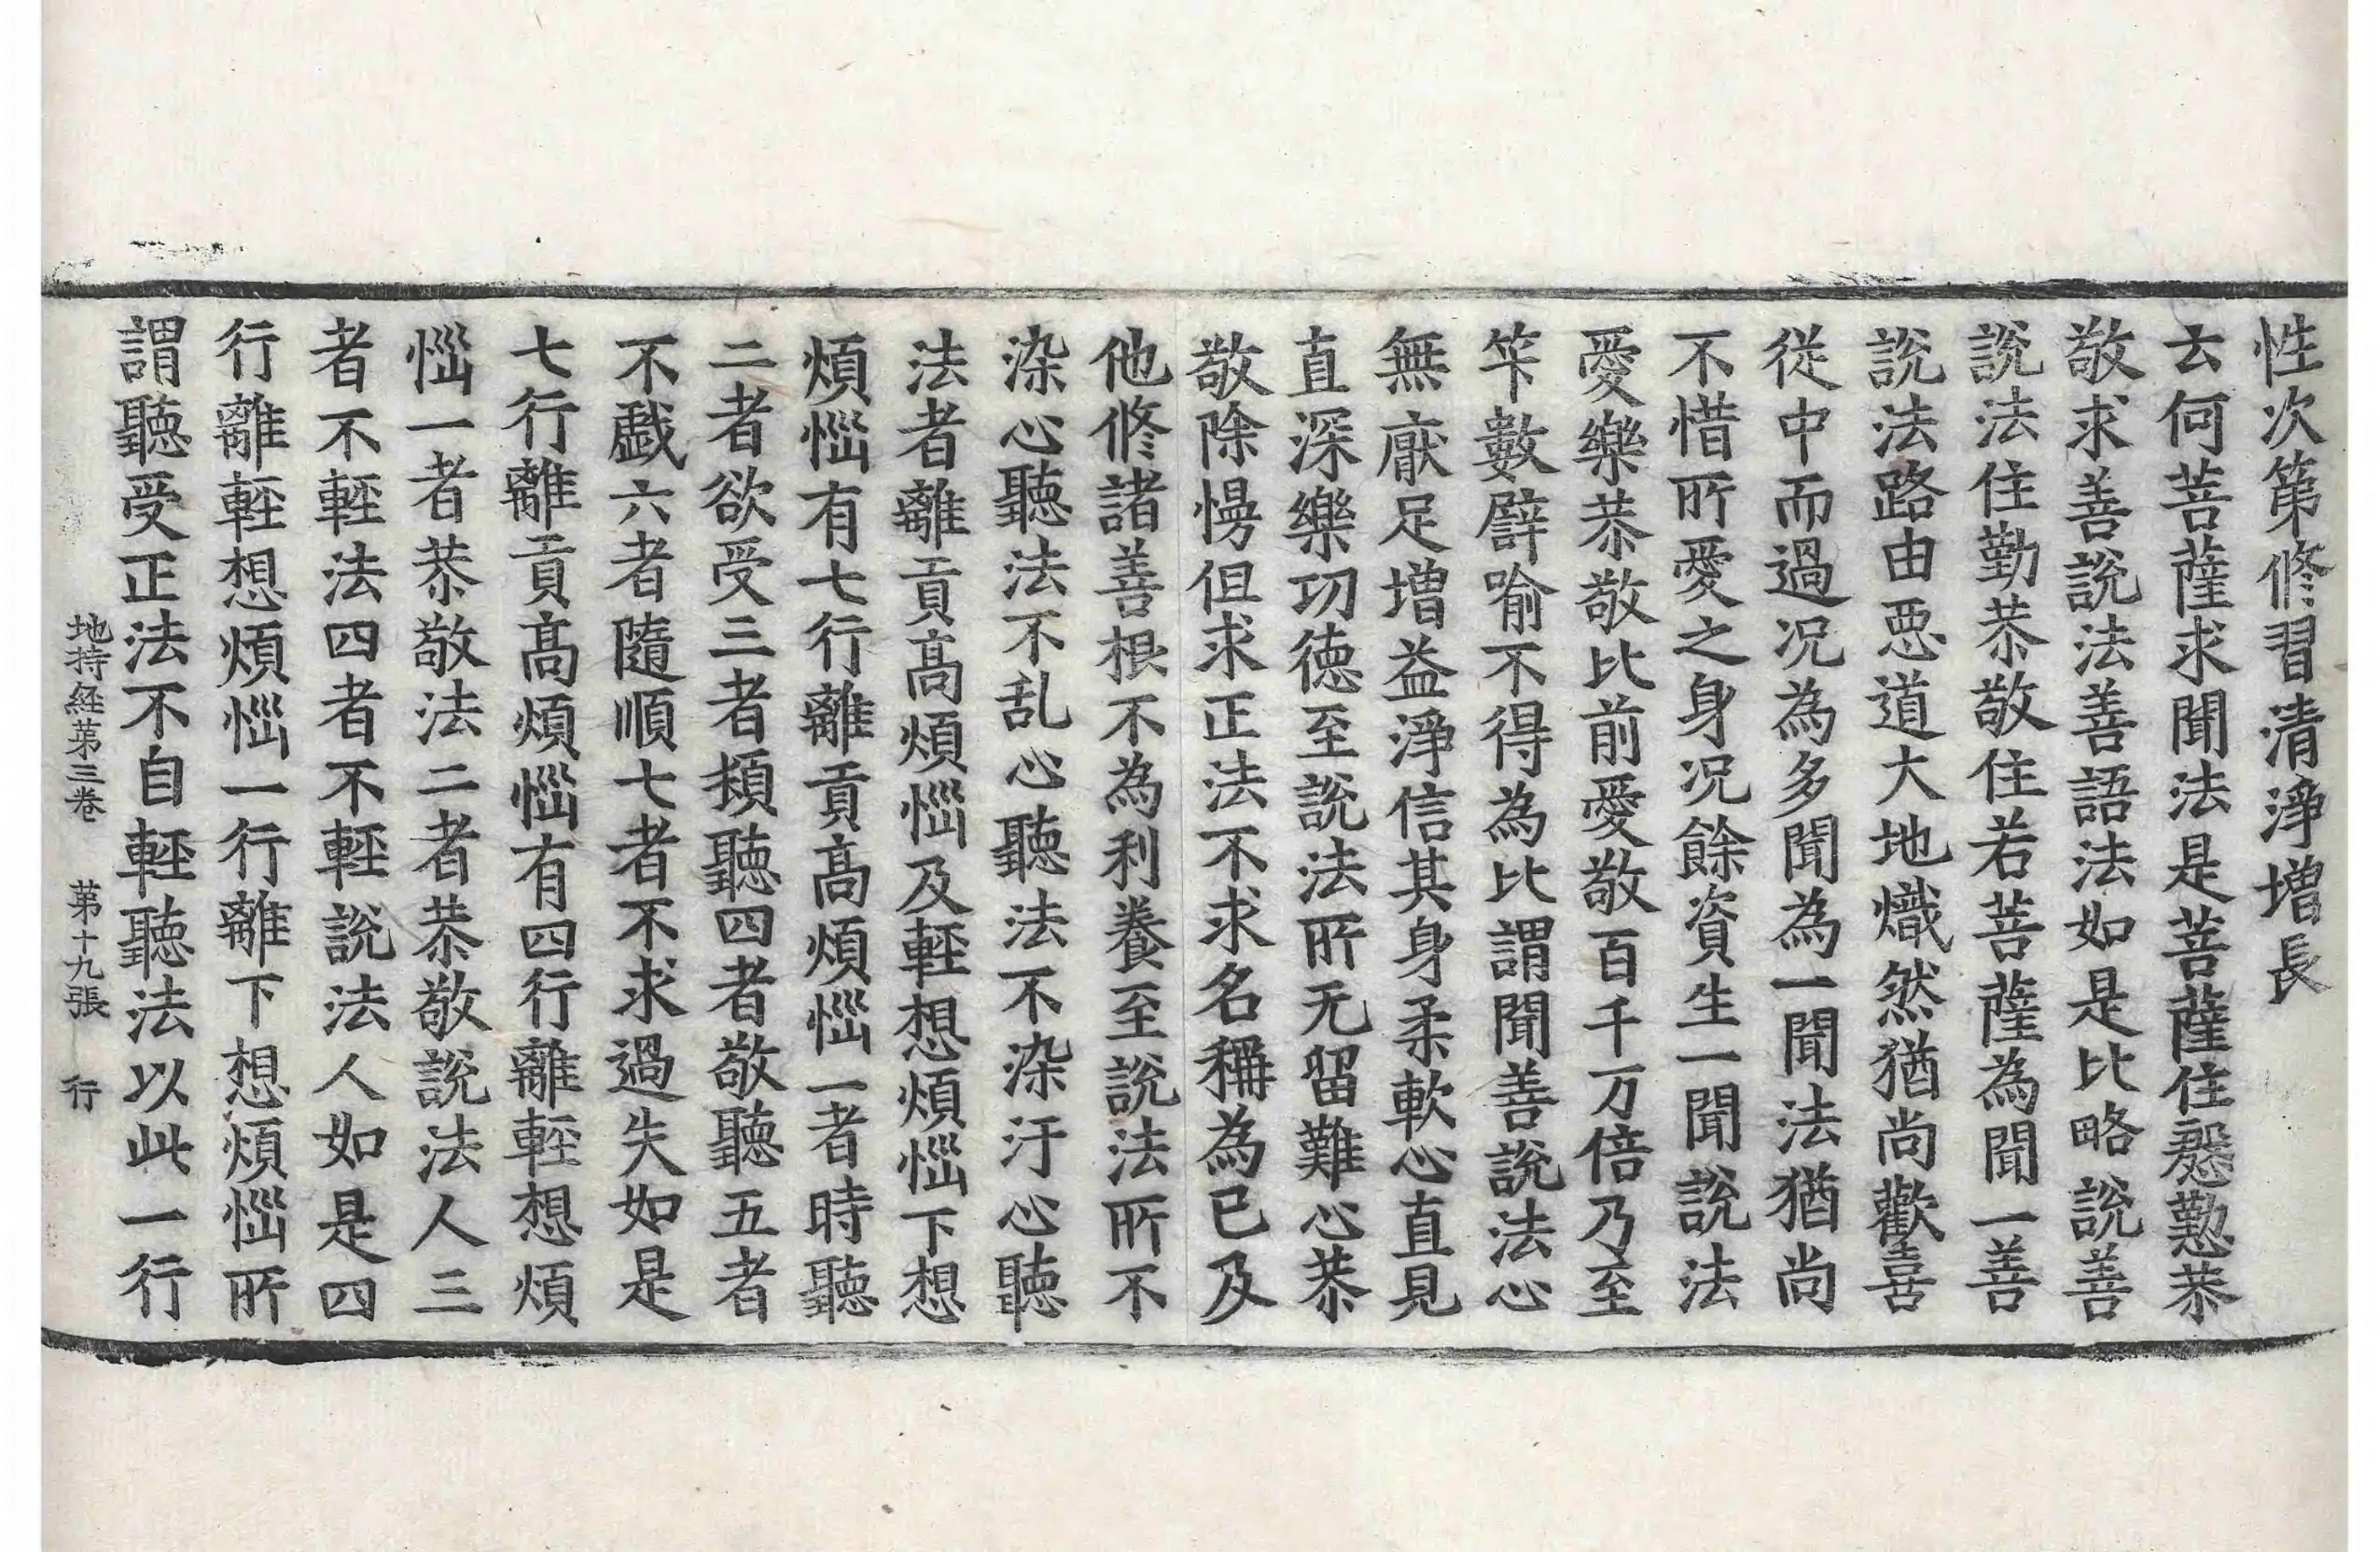 性次第修習清淨増長
云何菩薩求聞法是菩薩住慇懃恭
敬求善說法善語法如是比略說善
說法住勤恭敬住若菩薩為聞一善
說法路由悪道大地熾然猶尚歡喜
從中而過況為多聞為一聞法猶尚
不惜所愛之身況餘資生一聞說法
愛樂恭敬比前愛敬百千万倍乃至
笇數譬喻不得為比謂聞善說法心
無厭足増益淨信其身柔軟心直見
直深樂功徳至說法所无留難心恭
敬除慢但求正法不求名稱為已及
他修諸善根不為利養至說法所不
染心聽法不乱心聽法不染汙心聽
法者離貢髙煩惱及輕想煩惱下想
煩惱有七行離貢髙煩惱一者時聽
二者欲受三者頻聽四者敬聽五者
不戱六者隨順七者不求過失如是
七行離貢髙煩惱有四行離輕想煩
惱一者恭敬法二者恭敬說法人三
者不輕法四者不輕說法人如是四
行離輕想煩惱一行離下想煩惱所
謂聽受正法不自輕聽法以此一行
地持経苐三巻 苐十九張 行